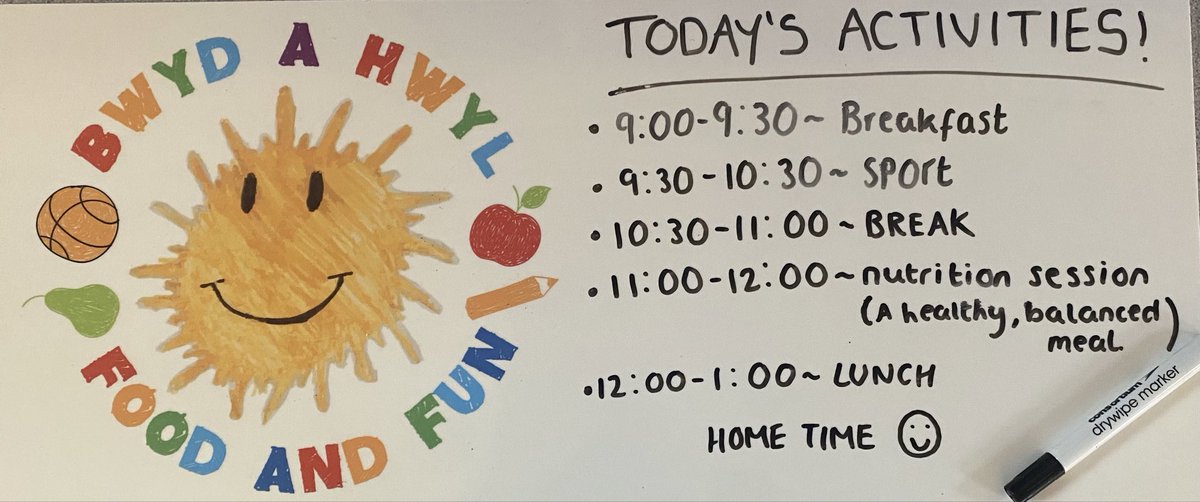 BWYD A HWYL
FOOD AND FUN
TODAY'S ACTIVITIES!
• 9:00-9:30~ Breakfast
• 9:30-10:30~ SPORt
• 10:30-11:00~ BREAK
• 11:00-12:00~ nutrition session
(A healthy, balanced
meal.)
• 12:00-1:00~ LUNCH
HOME TIME ☺
consortium
drywipe marker